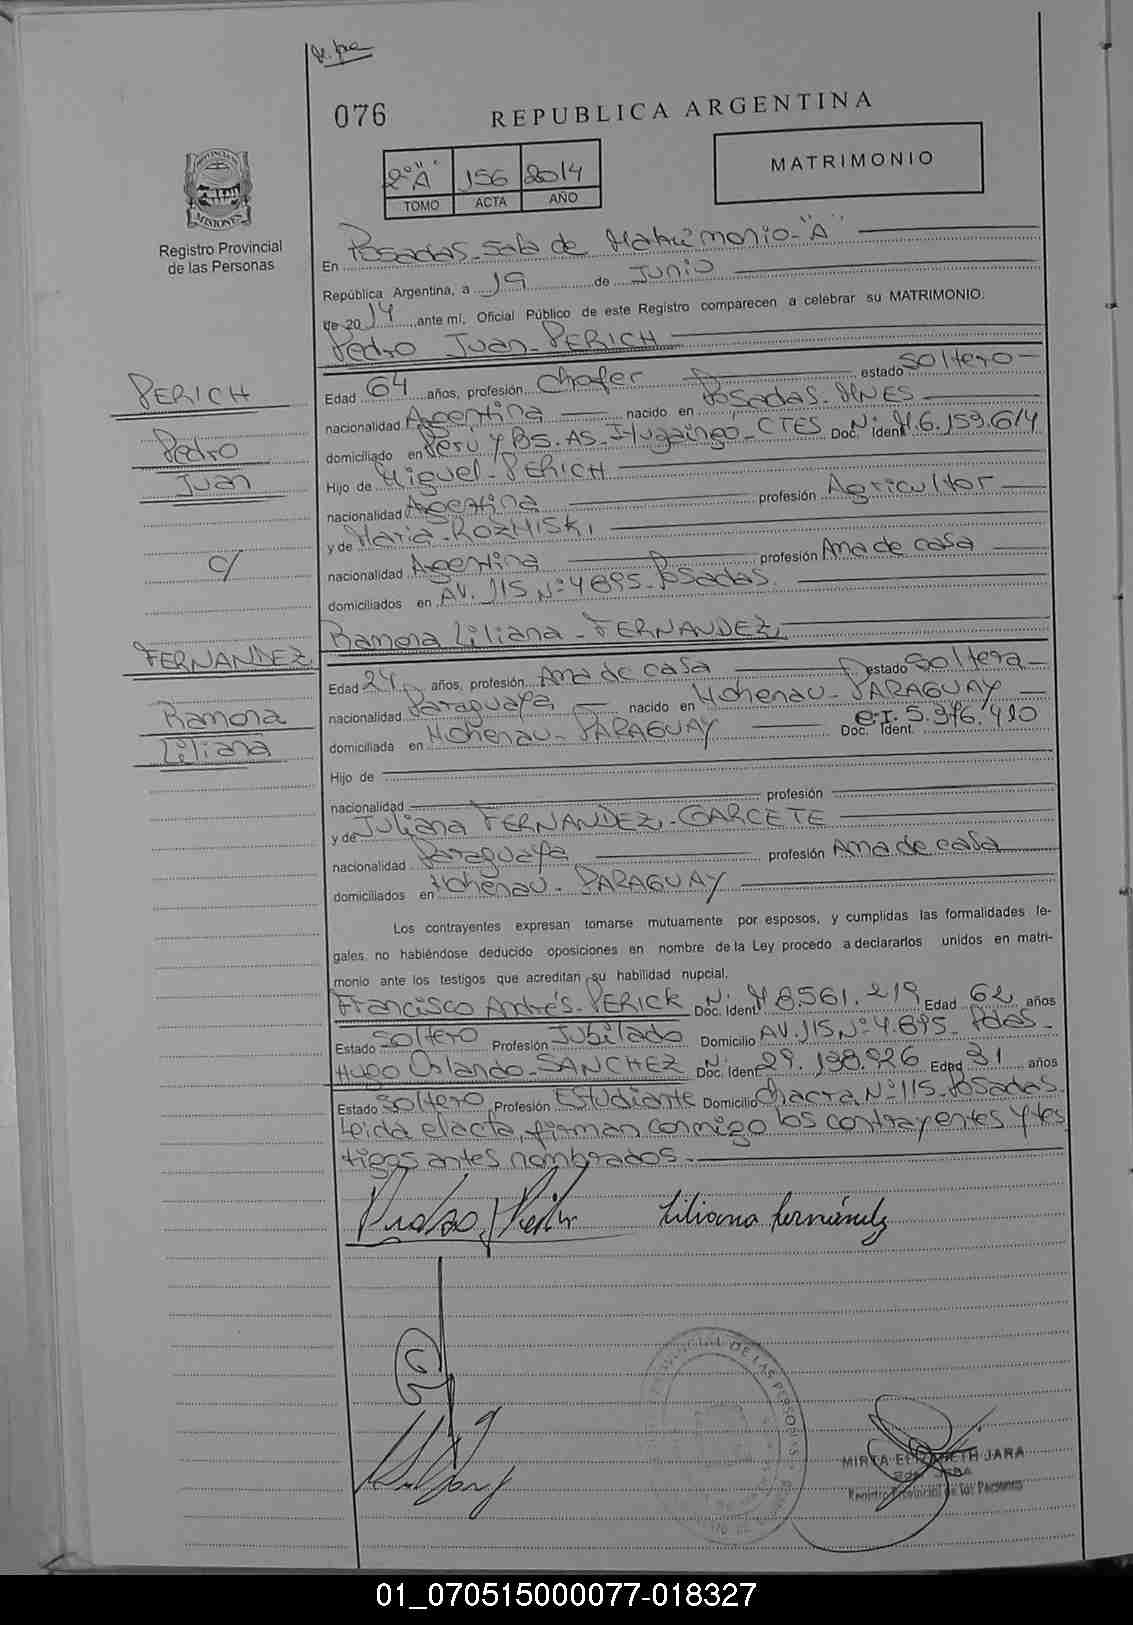 076
REPUBLICA ARGENTINA
MATRIMONIO
2º"A" 156 2014
TOMO ACTA AÑO
PROVINCIA DE
MISIONES
Registro Provincial
de las Personas
En Posadas-Sala de Matrimonio-"A"
República Argentina, a 19 de Junio
de 2014, ante mí, Oficial Público de este Registro comparecen a celebrar su MATRIMONIO:
Pedro Juan-PERICH
PERICH
Pedro
Juan
c/
FERNANDEZ
Ramona
Liliana
Edad 64 años, profesión Chofer estado Soltero
nacionalidad Argentina nacido en Posadas-MNES
domiciliado en Perú y BS.AS. Ituzaingo-CTES Doc. Ident. Nº M.6.159.614
Hijo de Miguel-PERICH
nacionalidad Argentina profesión Agricultor
y de Maria-ROZNISKI
nacionalidad Argentina profesión Ama de casa
domiciliados en AV. 115 Nº 4895-Posadas
Ramona Liliana-FERNANDEZ
Edad 24 años, profesión Ama de casa estado Soltera
nacionalidad Paraguaya nacido en Hohenau-PARAGUAY
domiciliada en Hohenau-PARAGUAY Doc. Ident. C.I. 5.376.410
Hijo de
nacionalidad profesión
y de Juliana FERNANDEZ-GARCETE
nacionalidad Paraguaya profesión Ama de casa
domiciliados en Hohenau-PARAGUAY
Los contrayentes expresan tomarse mutuamente por esposos, y cumplidas las formalidades le-
gales, no habiéndose deducido oposiciones en nombre de la Ley procedo a declararlos unidos en matri-
monio ante los testigos que acreditan su habilidad nupcial.
Francisco Andrés-PERICK Doc. Ident. Nº M 8.561.219 Edad 62 años
Estado Soltero Profesión Jubilado Domicilio AV.115 Nº 4.895-Pdas-
Hugo Orlando-SANCHEZ Doc. Ident. Nº 29.198.926 Edad 31 años
Estado Soltero Profesión Estudiante Domicilio Chacra Nº 115-Posadas
Leida el acta, firman conmigo los contrayentes y tes
tigos antes nombrados.-
Liliana Fernández
MIRTA ELIZABETH JARA
Registro Provincial de las Personas
01_070515000077-018327